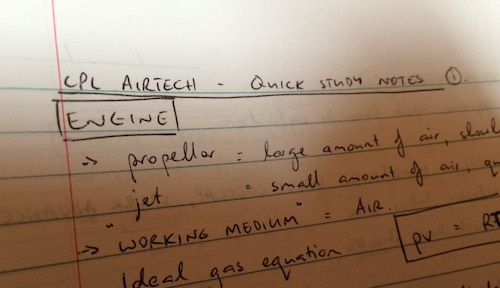 CPL AIRTECH - QUICK STUDY NOTES ①
ENGINE
→ propellor = large amount of air,
jet = small amount of air,
→ "WORKING MEDIUM" = AIR.
Ideal gas equation
PV =